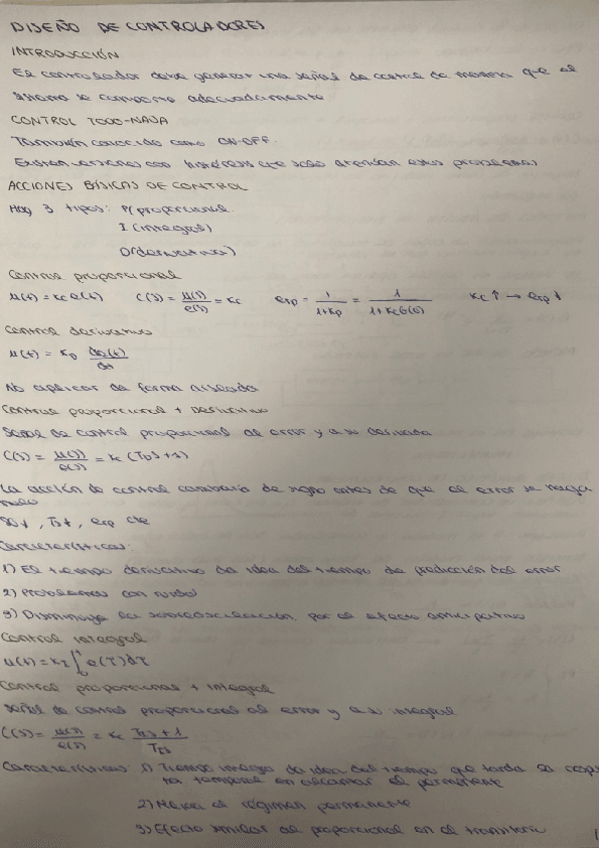 DISEÑO DE CONTROLADORES
INTRODUCCIÓN
El controlador debe generar una señal de control de manera que el
sistema se comporte adecuadamente
CONTROL TODO-NADA
También conocido como ON-OFF
Existen versiones con histéresis que solo atenúan estos problemas
ACCIONES BÁSICAS DE CONTROL
Hay 3 tipos: P(proporcional
I (integral)
D(derivativo)
Control proporcional
u(t) = Kc e(t) C(s) = u(s)/e(s) = Kc erp = 1/(1+Kp) = 1/(1+KcG(0)) Kc ↑ → erp ↓
Control derivativo
u(t) = KD de(t)/dt
No aplicar de forma aislada
Control proporcional + Derivativo
Señal de control proporcional al error y a su derivada
C(s) = u(s)/e(s) = Kc (TDs+1)
La acción de control cambiaría de signo antes de que el error se haga
nulo
SO↓, Ts↓, erp cte
Características:
1) El tiempo derivativo da idea del tiempo de predicción del error
2) Problemas con ruido
3) Disminuye la sobreoscilación por el efecto anticipativo
Control integral
u(t) = KI ∫₀ᵗ e(τ)dτ
Control proporcional + integral
Señal de control proporcional al error y a su integral
C(s) = u(s)/e(s) = Kc (TIs+1)/(TIs)
Características: 1) Tiempo integral da idea del tiempo que tarda la resp
ta temporal en alcanzar el permanente
2) Mejora el régimen permanente
3) Efecto similar al proporcional en el transitorio
1